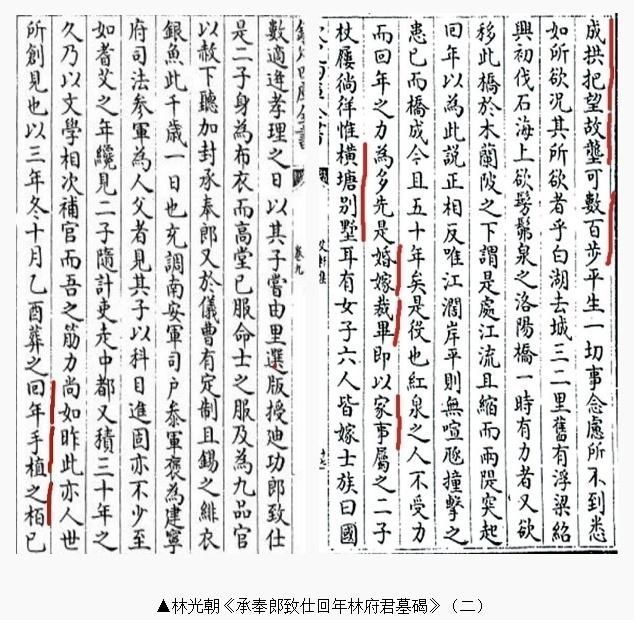 數適逰孝理之日以其子嘗由里選版授廸功郎致仕
是二子身為布衣而高堂已服命士之服及為九品官
以赦下聽加封承奉郎又於儀曹有定制且錫之緋衣
銀魚此千歲一日也充調南安軍司户叅軍褒為建寧
府司法叅軍為人父者見其子以科目進固亦不少至
如耆艾之年纔見二子隨計吏走中都又積三十年之
久乃以文學相次補官而吾之筋力尚如昨此亦人世
所創見也以三年冬十月乙酉葬之回年手植之栢已
卷九
成拱把望故壟可數百步平生一切事念慮所不到悉
如所欲況其所欲者乎白湖去城三二里舊有浮梁紹
興初伐石海上欲髣髴泉之洛陽橋一時有力者又欲
移此橋於木蘭陂之下謂是處江流且縮而兩隄突起
回年以為此説正相反唯江濶岸平則無喧豗撞擊之
患已而橋成今且五十年矣是役也紅泉之人不受力
而回年之力為多先是婚嫁裁畢即以家事屬之二子
杖屨徜徉惟橫塘别墅耳有女子六人皆嫁士族曰國
▲林光朝《承奉郎致仕回年林府君墓碣》（二）